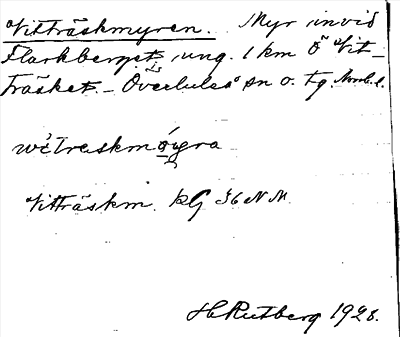 Vitträskmyren. Myr invid
Flarkberget, ung. 1 km Ö Vit-
träsket. – Överluleå sn o. tg. Norrb. l.
witraskmÿra
Vitträskm. kG 36 NM.
H Rutberg 1928.